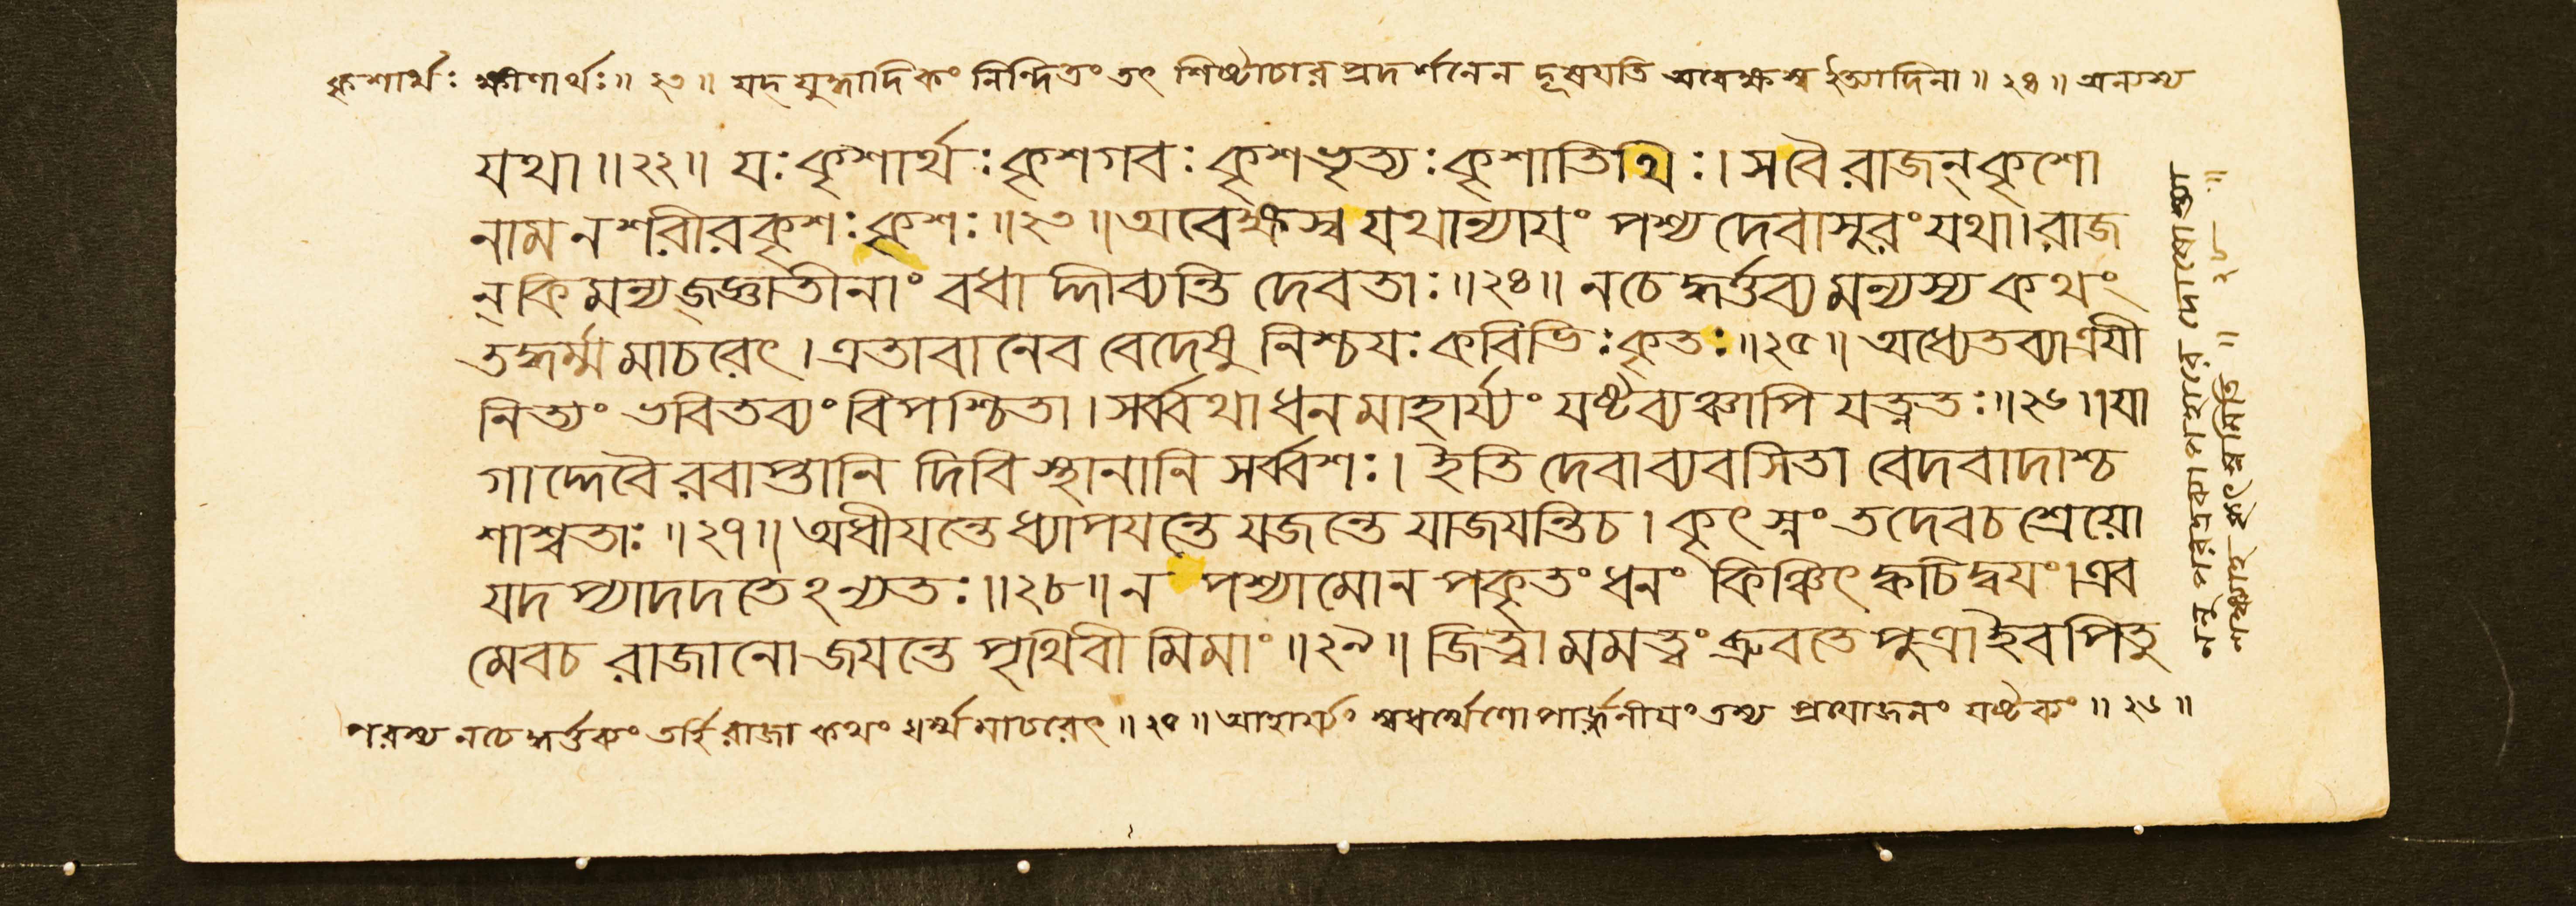 কৃশার্থঃ ক্ষীণার্থঃ ॥ ২৩ ॥ যদ্ যুদ্ধাদিকং নিন্দিতং তৎ শিষ্টাচার প্রদর্শনেন দূষযতি অবেক্ষস্ব ইত্যাদিনা ॥ ২৪ ॥ অন্যস্য
যথা ॥ ২২ ॥ যঃ কৃশার্থঃ কৃশগবঃ কৃশভৃত্যঃ কৃশাতিথিঃ । স বৈ রাজন্ কৃশো
নাম ন শরীরকৃশঃ কৃশঃ ॥ ২৩ ॥ অবেক্ষস্ব যথান্যাযং পশ্য দেবাসুরং যথা । রাজ
ন্ কিমন্যজ্জ্ঞাতীনাং বধাদ্দীব্যন্তি দেবতাঃ ॥ ২৪ ॥ ন চেদ্ধর্ত্তব্যমন্যস্য কথং
তদ্ধর্ম্মমাচরেৎ । এতাবানেব বেদেষু নিশ্চযঃ কবিভিঃ কৃতঃ ॥ ২৫ ॥ অধ্যেতব্যা ত্রযী
নিত্যং ভবিতব্যং বিপশ্চিতা । সর্ব্বথা ধনমাহার্য্যং যষ্টব্যঞ্চাপি যত্নতঃ ॥ ২৬ ॥ যা
গাদ্দেবৈরবাপ্তানি দিবি স্থানানি সর্ব্বশঃ । ইতি দেবা ব্যবসিতা বেদবাদাশ্চ
শাশ্বতাঃ ॥ ২৭ ॥ অধীযন্তেধ্যাপযন্তে যজন্তে যাজযন্তি চ । কৃৎস্নং তদেব চ শ্রেয়ো
যদপ্যাদদতেঽন্যতঃ ॥ ২৮ ॥ ন পশ্যামোনপকৃতং ধনং কিঞ্চিৎ ক্বচিদ্বযং । এব
মেব চ রাজানো জযন্তে পৃথিবীমিমাং ॥ ২৯ ॥ জিত্বা মমত্বং ব্রুবতে পুত্রা ইব পিতু
পরস্য ন চেদ্ধর্ত্তব্যং তর্হি রাজা কথং ধর্ম্মমাচরেৎ ॥ ২৫ ॥ আহার্য্যং স্বধর্ম্মেণোপার্জ্জনীযং তস্য প্রযোজনং যষ্টব্যং ॥ ২৬ ॥